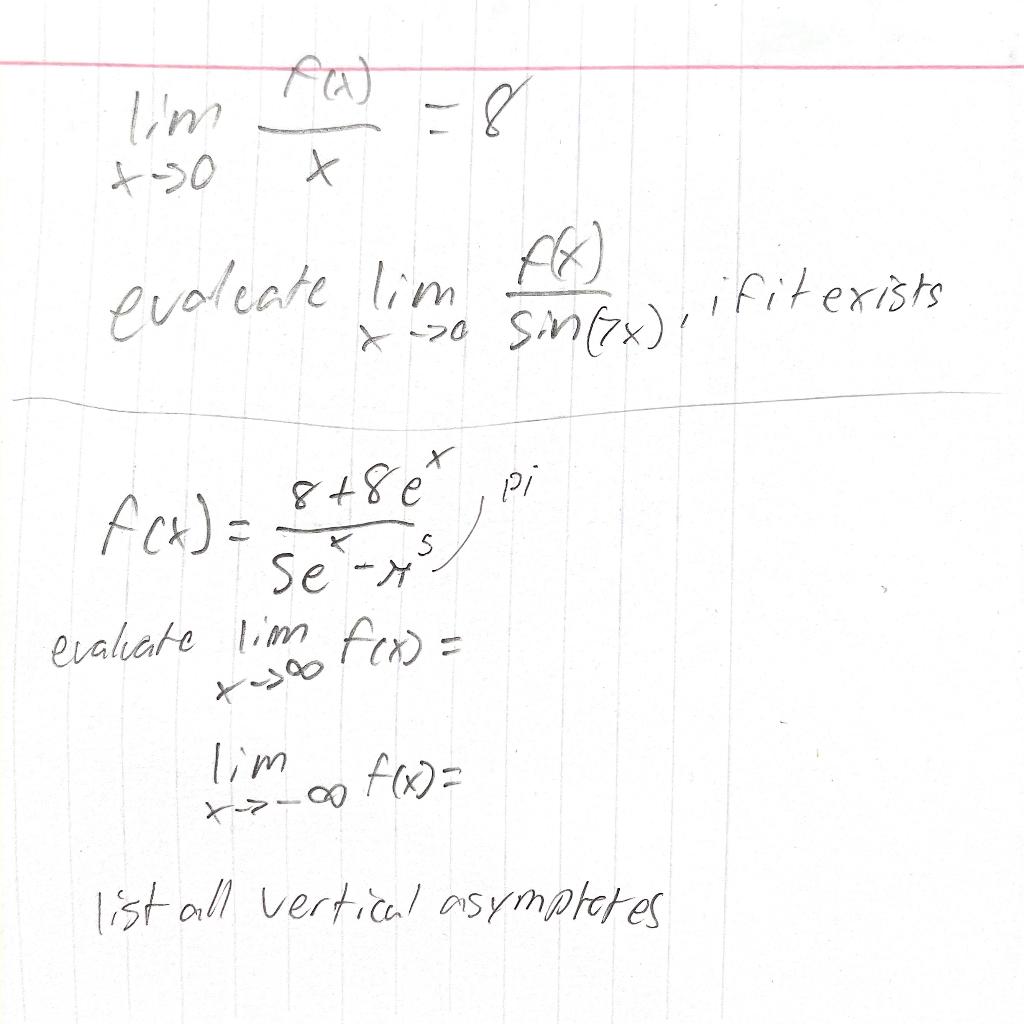 lim x→0 f(x)/x = 8
evaluate lim x→0 f(x)/sin(7x), if it exists
f(x) = (8+8e^x)/(5e^x-π^5) pi
evaluate lim x→∞ f(x) =
lim x→-∞ f(x) =
list all vertical asymptotes